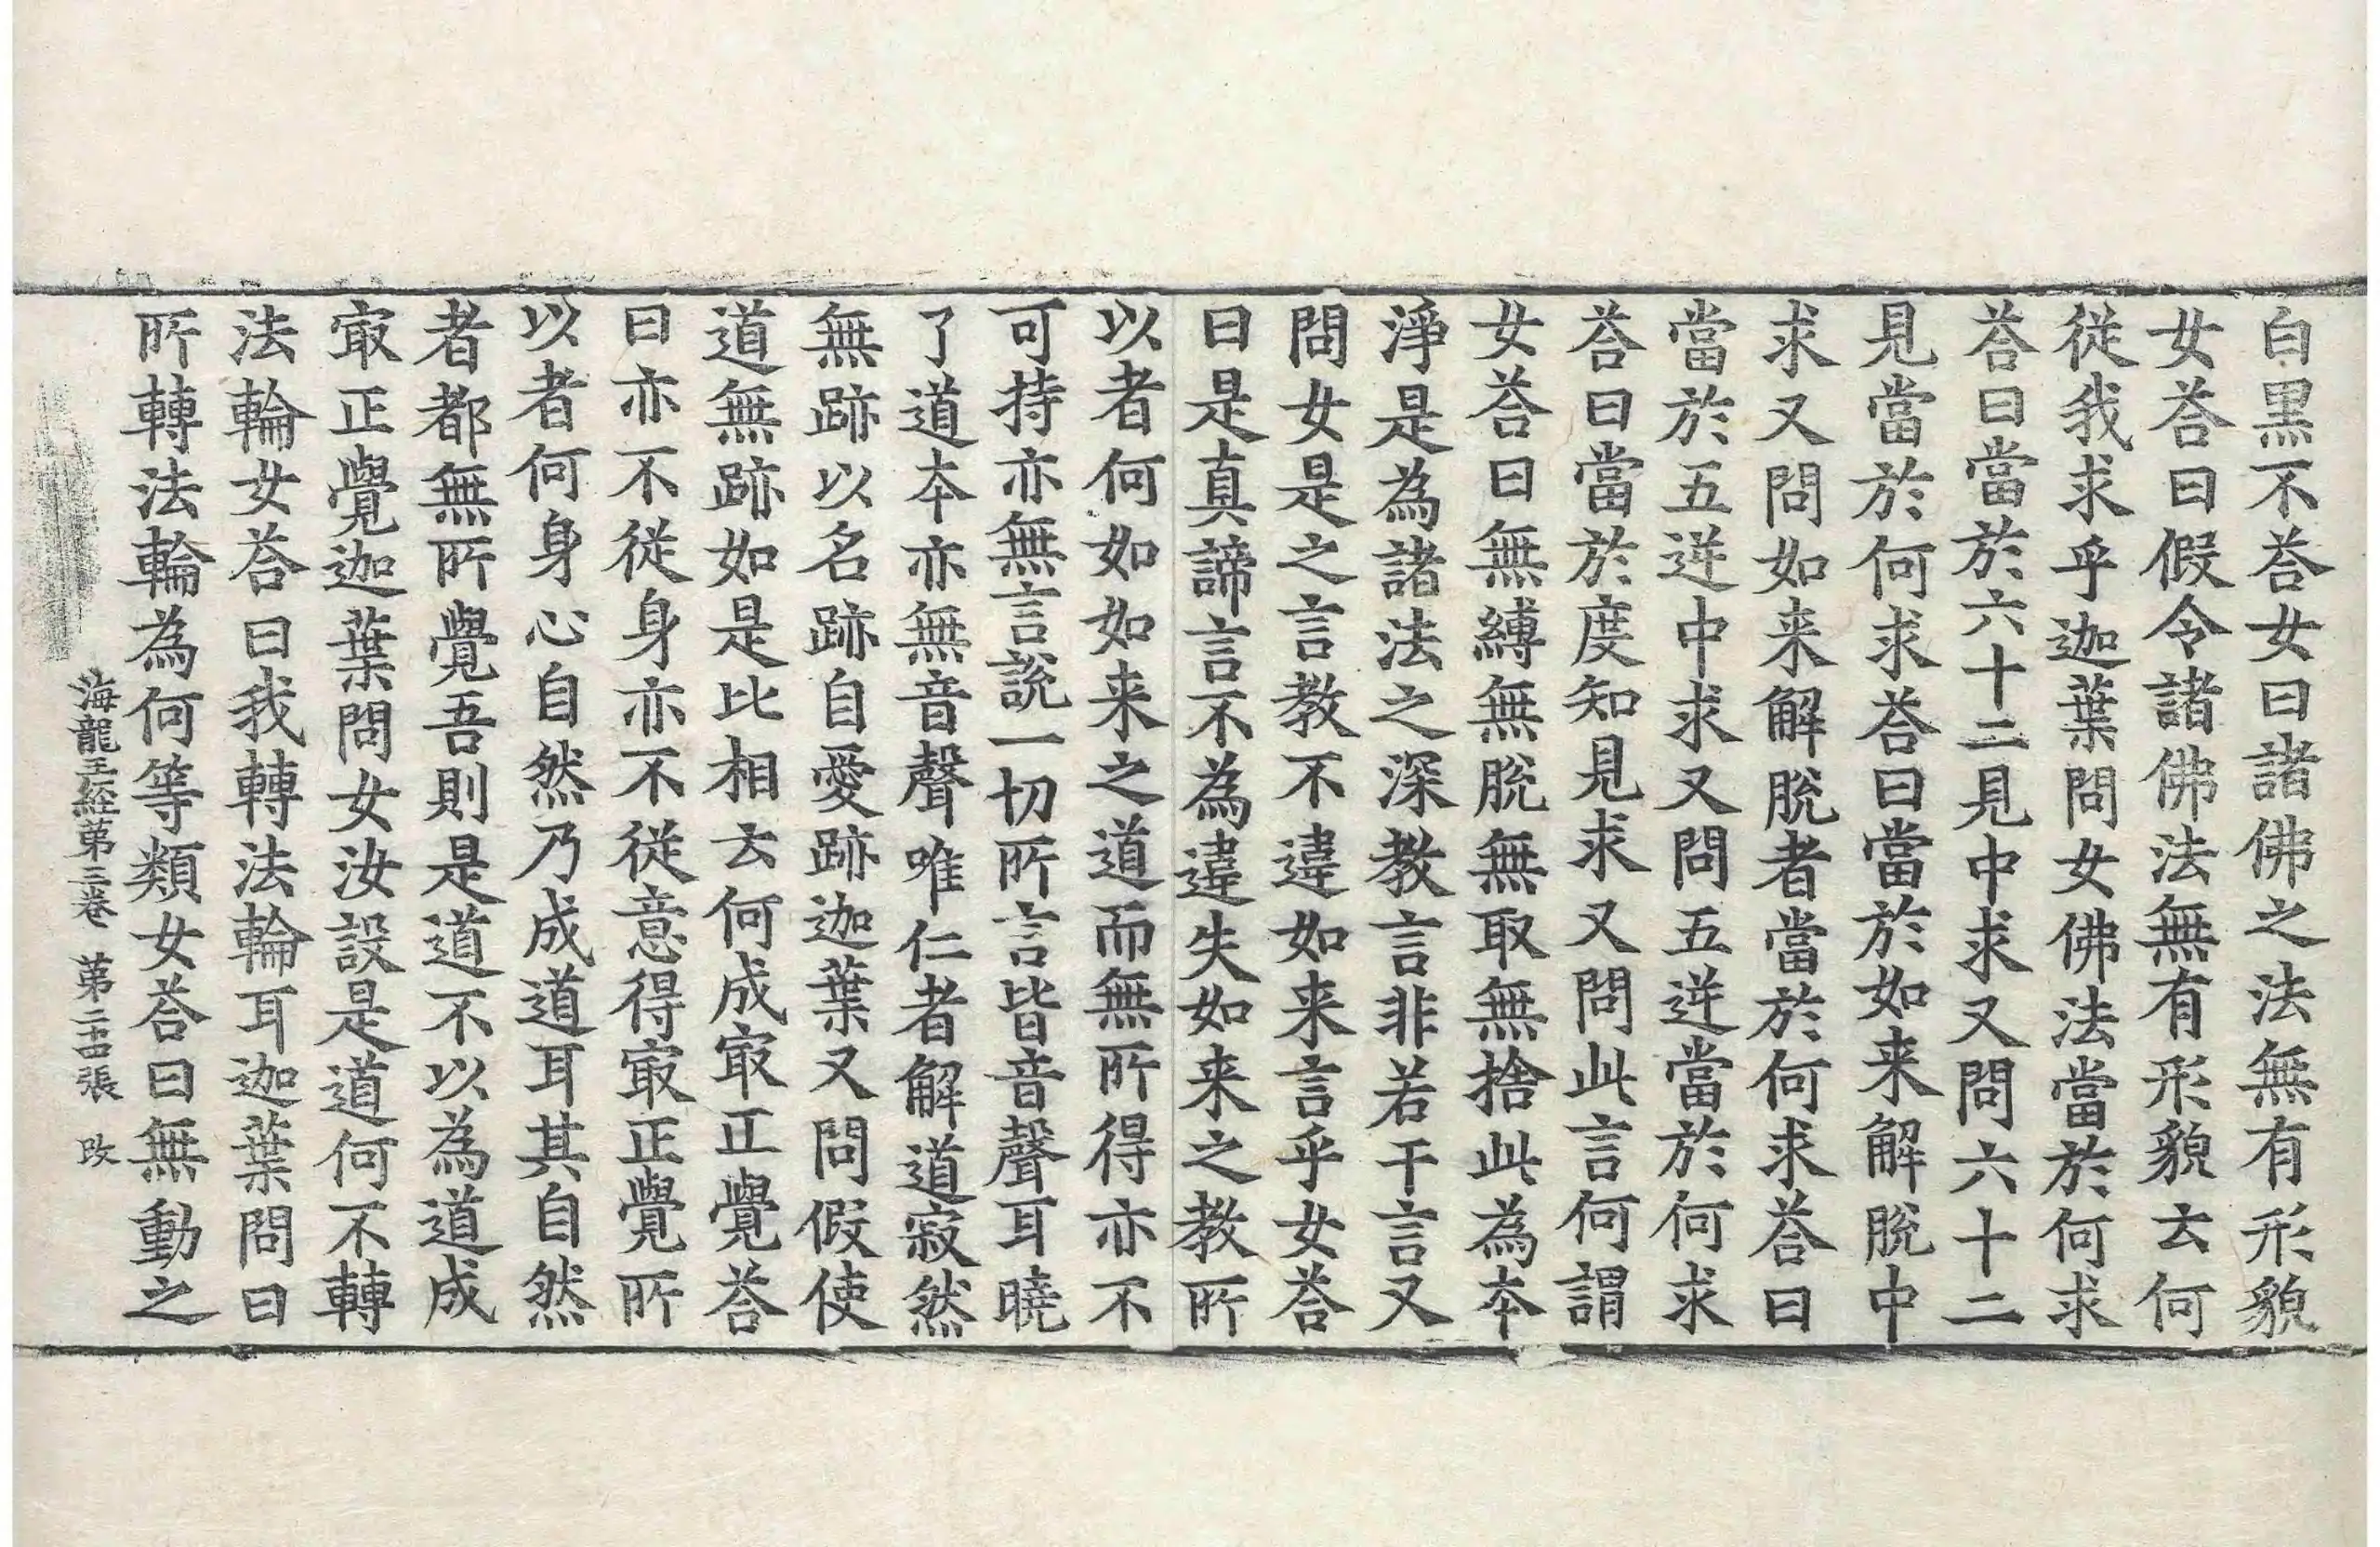 白黒不荅女曰諸佛之法無有形貌
女荅曰假令諸佛法無有形貌云何
從我求乎迦葉問女佛法當於何求
荅曰當於六十二見中求又問六十二
見當於何求荅曰當於如来解脫中
求又問如来解脫者當於何求荅曰
當於五逆中求又問五逆當於何求
荅曰當於度知見求又問此言何謂
女荅曰無縛無脫無取無捨此為本
淨是為諸法之深教言非若干言又
問女是之言教不違如来言乎女荅
曰是真諦言不為違失如来之教所
以者何如如来之道而無所得亦不
可持亦無言說一切所言皆音聲耳曉
了道本亦無音聲唯仁者解道寂然
無跡以名跡自愛跡迦葉又問假使
道無跡如是比相云何成㝡正覺荅
曰亦不從身亦不從意得㝡正覺所
以者何身心自然乃成道耳其自然
者都無所覺吾則是道不以為道成
㝡正覺迦葉問女汝設是道何不轉
法輪女荅曰我轉法輪耳迦葉問曰
所轉法輪為何等類女荅曰無動之
海龍王経第三卷 第二十四張 改